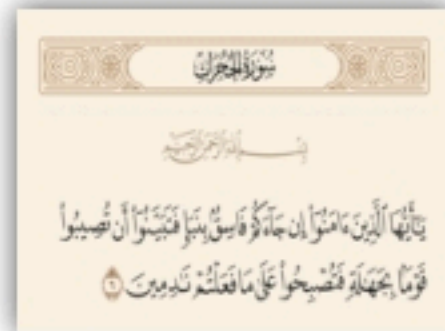 سُورَةُ الحُجُرَاتِ
بِسْمِ اللَّهِ الرَّحْمَٰنِ الرَّحِيمِ
يَٰٓأَيُّهَا ٱلَّذِينَ ءَامَنُوٓاْ إِن جَآءَكُمۡ فَاسِقُۢ بِنَبَإٖ فَتَبَيَّنُوٓاْ أَن تُصِيبُواْ
قَوۡمَۢا بِجَهَٰلَةٖ فَتُصۡبِحُواْ عَلَىٰ مَا فَعَلۡتُمۡ نَٰدِمِينَ ٦